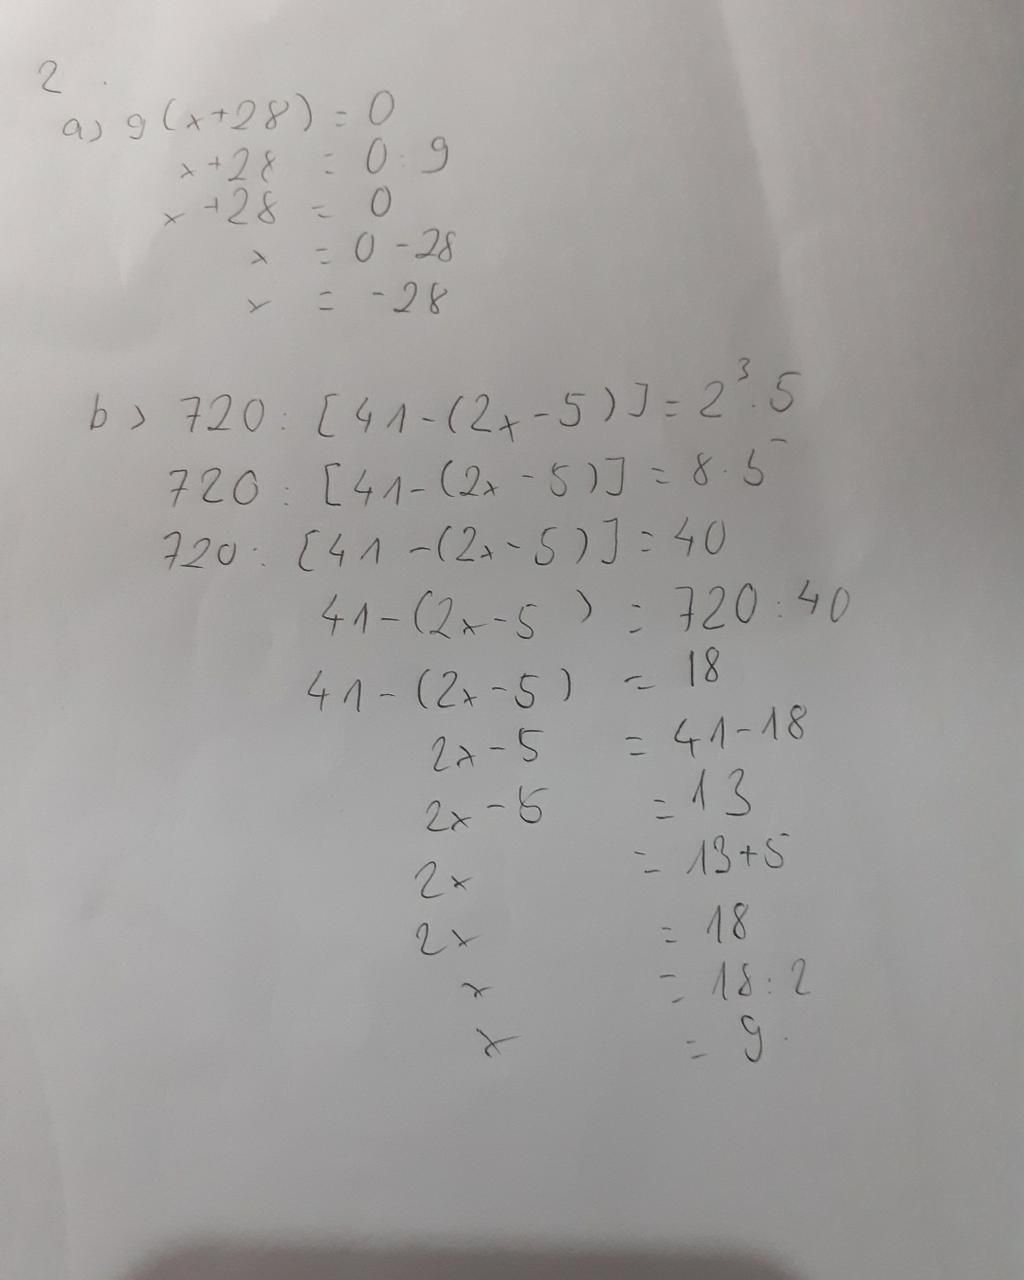 2
a) 9(x+28) = 0
x+28 = 0 : 9
x+28 = 0
x = 0 -28
x = -28
b) 720 : [41-(2x-5)] = 2³.5
720 : [41-(2x-5)] = 8.5
720 : [41-(2x-5)] = 40
41-(2x-5) = 720 : 40
41-(2x-5) = 18
2x-5 = 41-18
2x-5 = 13
2x = 13+5
2x = 18
x = 18 : 2
x = 9.